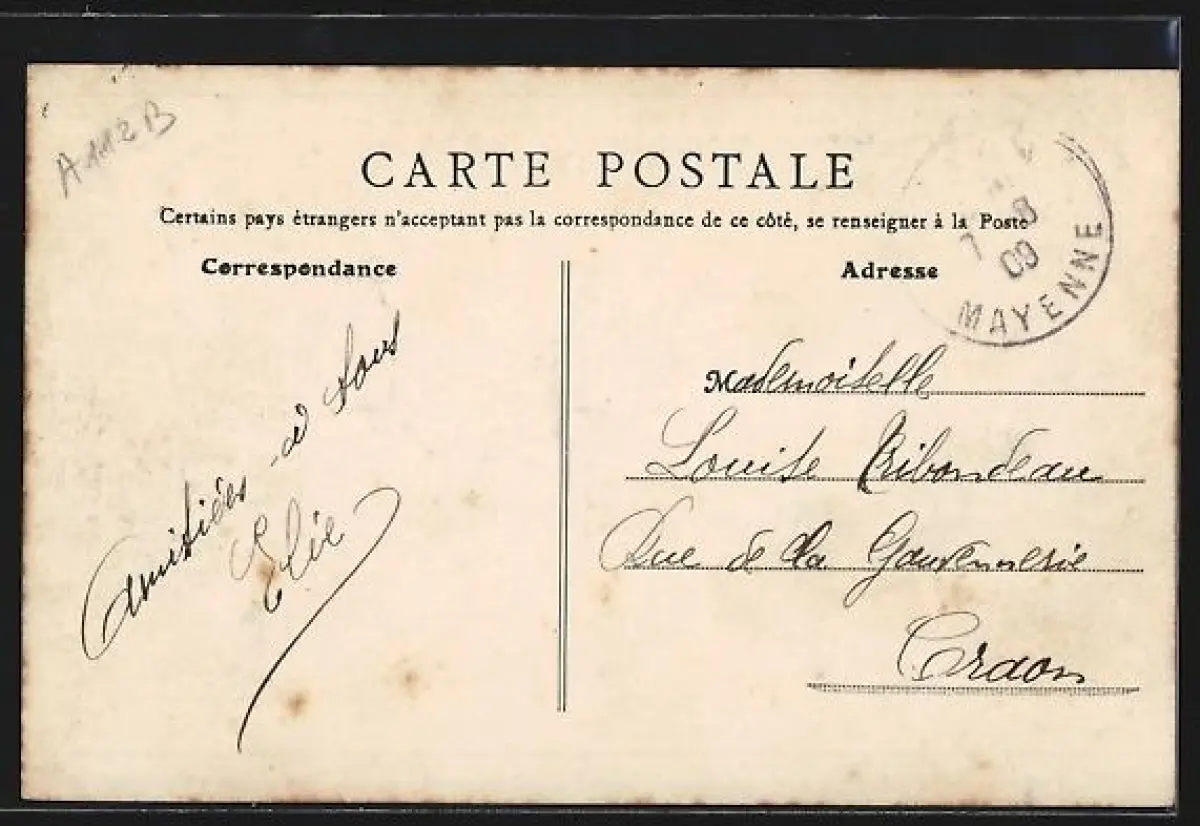 A112B
CARTE POSTALE
Certains pays étrangers n'acceptant pas la correspondance de ce côté, se renseigner à la Poste
Correspondance
Adresse
8
09
MAYENNE
Amitiées à tous
Elie
Mademoiselle
Louise Ribondeau
Rue de la
Craon